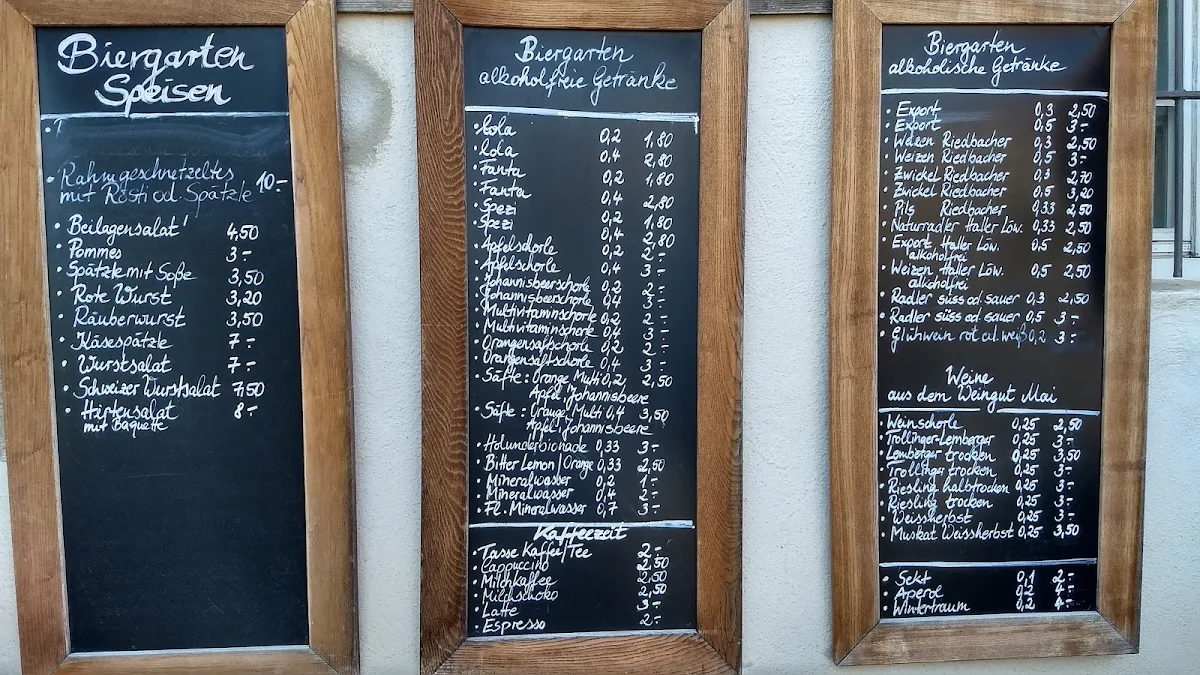 Biergarten
Speisen
· T
· Rahmgeschnetzeltes
mit Rösti od. Spätzle 10.-
· Beilagensalat 4,50
· Pommes 3.-
· Spätzle mit Soße 3,50
· Rote Wurst 3,20
· Räuberwurst 3,50
· Käsespätzle 7.-
· Wurstsalat 7.-
· Schweizer Wurstsalat 7,50
· Hirtensalat 8.-
mit Baguette
Biergarten
alkoholfreie Getränke
· Cola 0,2 1,80
· Cola 0,4 2,80
· Fanta 0,2 1,80
· Fanta 0,4 2,80
· Spezi 0,2 1,80
· Spezi 0,4 2,80
· Apfelschorle 0,2 2.-
· Apfelschorle 0,4 3.-
· Johannisbeerschorle 0,2 2.-
· Johannisbeerschorle 0,4 3.-
· Multivitaminschorle 0,2 2.-
· Multivitaminschorle 0,4 3.-
· Orangensaftschorle 0,2 2.-
· Orangensaftschorle 0,4 3.-
· Säfte: Orange, Multi 0,2 2,50
Apfel, Johannisbeere
· Säfte: Orange, Multi 0,4 3,50
Apfel, Johannisbeere
· Holunderbionade 0,33 3.-
· Bitter Lemon/Orange 0,33 2,50
· Mineralwasser 0,2 1.-
· Mineralwasser 0,4 2.-
· Fl. Mineralwasser 0,7 3.-
Kaffeezeit
· Tasse Kaffee/Tee 2.-
· Cappuccino 2,50
· Milchkaffee 2,50
· Milchschoko 2,50
· Latte 3.-
· Espresso 2.-
Biergarten
alkoholische Getränke
· Export 0,3 2,50
· Export 0,5 3.-
· Weizen Riedbacher 0,3 2,50
· Weizen Riedbacher 0,5 3.-
· Zwickel Riedbacher 0,3 2,70
· Zwickel Riedbacher 0,5 3,20
· Pils Riedbacher 0,33 2,50
· Naturradler Haller Löw. 0,33 2,50
· Export Haller Löw. 0,5 2,50
alkoholfrei
· Weizen Haller Löw. 0,5 2,50
alkoholfrei
· Radler süss od sauer 0,3 2,50
· Radler süss od sauer 0,5 3.-
· Glühwein rot od. weiß 0,2 3.-
Weine
aus dem Weingut Mai
· Weinschorle 0,25 2,50
· Trollinger-Lemberger 0,25 3.-
· Lemberger trocken 0,25 3,50
· Trollinger trocken 0,25 3.-
· Riesling halbtrocken 0,25 3.-
· Riesling trocken 0,25 3.-
· Weissherbst 0,25 3.-
· Muskat Weissherbst 0,25 3,50
· Sekt 0,1 2.-
· Aperol 0,2 4.-
· Wintertraum 0,2 4.-